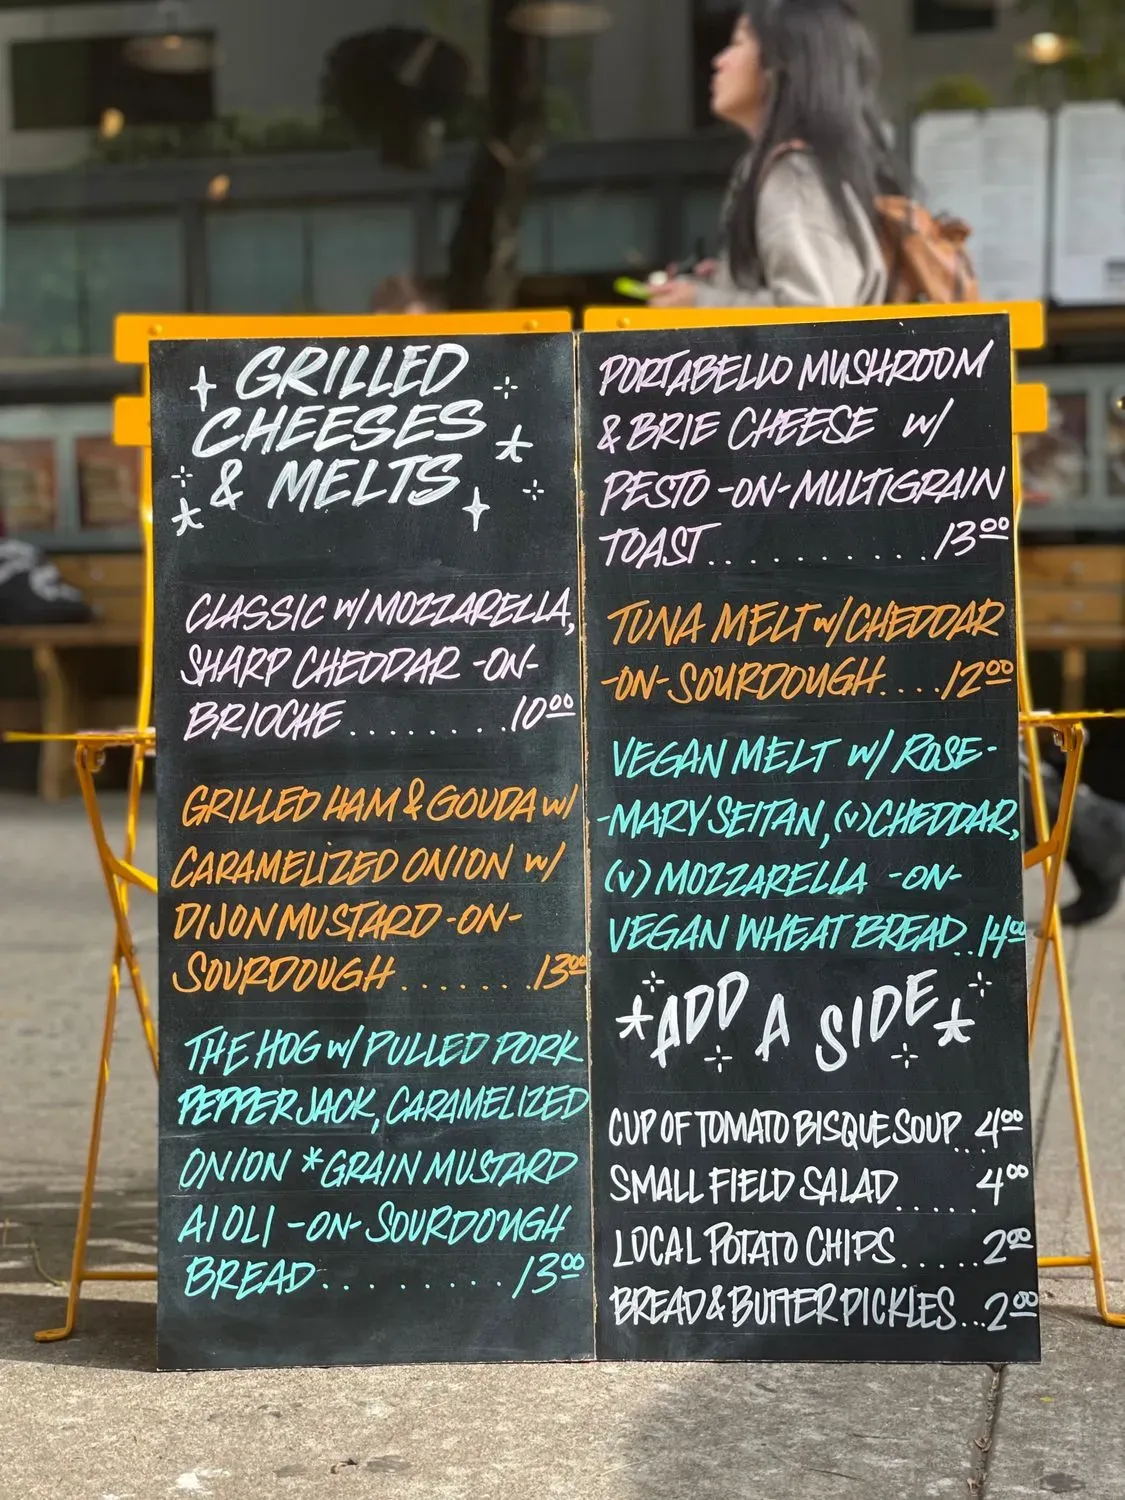 GRILLED
CHEESES
& MELTS
CLASSIC w/ MOZZARELLA,
SHARP CHEDDAR -ON-
BRIOCHE........10⁰⁰
GRILLED HAM & GOUDA w/
CARAMELIZED ONION w/
DIJON MUSTARD -ON-
SOURDOUGH.......13⁰⁰
THE HOG w/ PULLED PORK
PEPPER JACK, CARAMELIZED
ONION *GRAIN MUSTARD
AIOLI -ON- SOURDOUGH
BREAD.........13⁰⁰
PORTABELLO MUSHROOM
& BRIE CHEESE w/
PESTO -ON- MULTIGRAIN
TOAST.........13⁰⁰
TUNA MELT w/ CHEDDAR
-ON- SOURDOUGH....12⁰⁰
VEGAN MELT w/ ROSE-
-MARY SEITAN, (v) CHEDDAR,
(v) MOZZARELLA -ON-
VEGAN WHEAT BREAD..14⁰⁰
ADD A SIDE
CUP OF TOMATO BISQUE SOUP...4⁰⁰
SMALL FIELD SALAD.....4⁰⁰
LOCAL POTATO CHIPS.....2⁰⁰
BREAD & BUTTER PICKLES...2⁰⁰